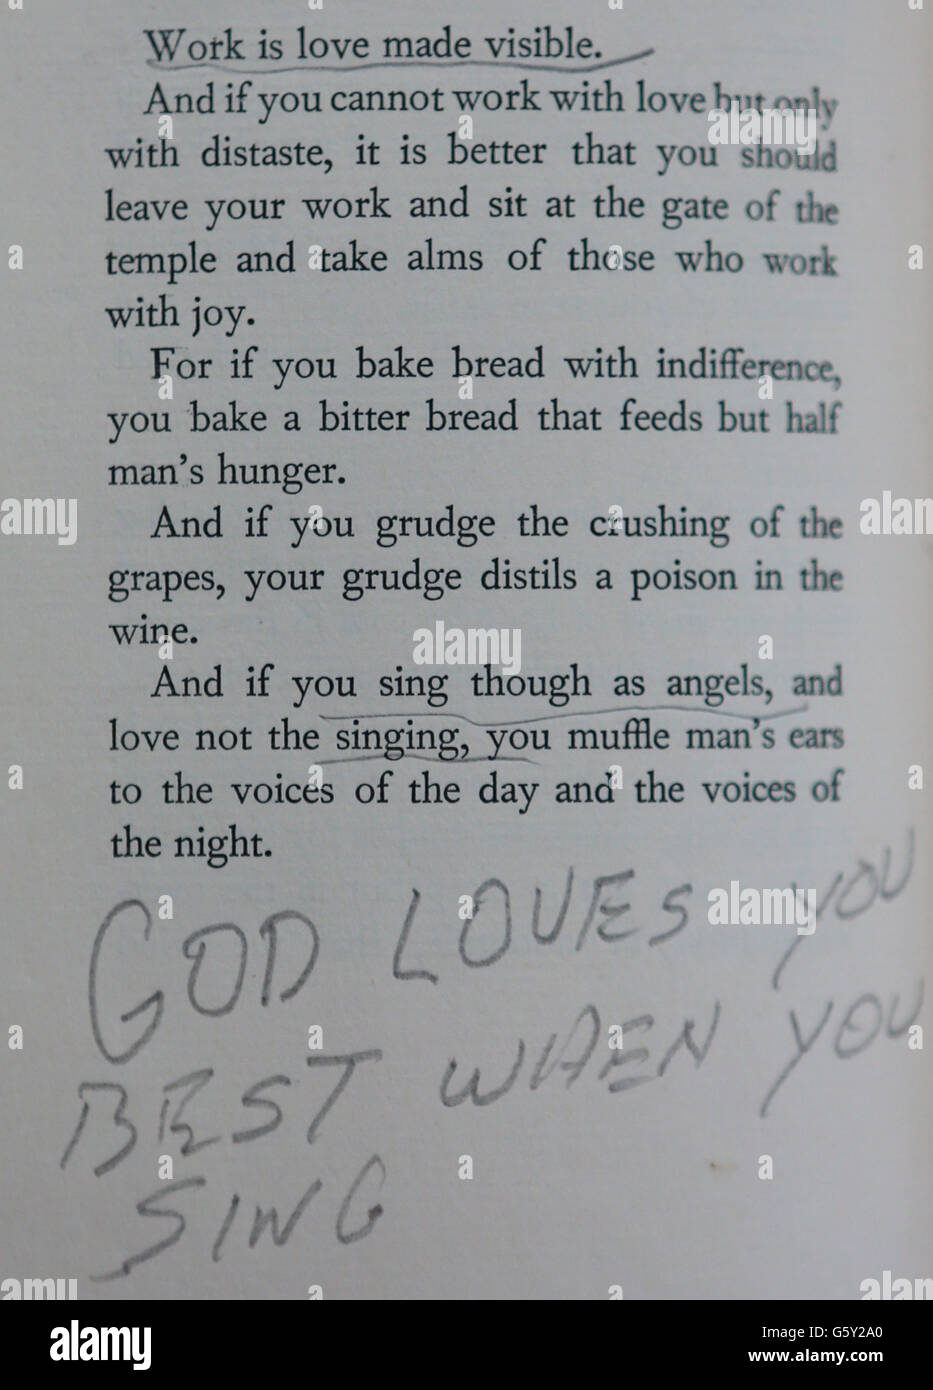 Work is love made visible.
And if you cannot work with love but only
with distaste, it is better that you should
leave your work and sit at the gate of the
temple and take alms of those who work
with joy.
For if you bake bread with indifference,
you bake a bitter bread that feeds but half
man's hunger.
And if you grudge the crushing of the
grapes, your grudge distils a poison in the
wine.
And if you sing though as angels, and
love not the singing, you muffle man's ears
to the voices of the day and the voices of
the night.
GOD LOVES YOU
BEST WHEN YOU
SING
alamy
Image ID: G5Y2A0
www.alamy.com